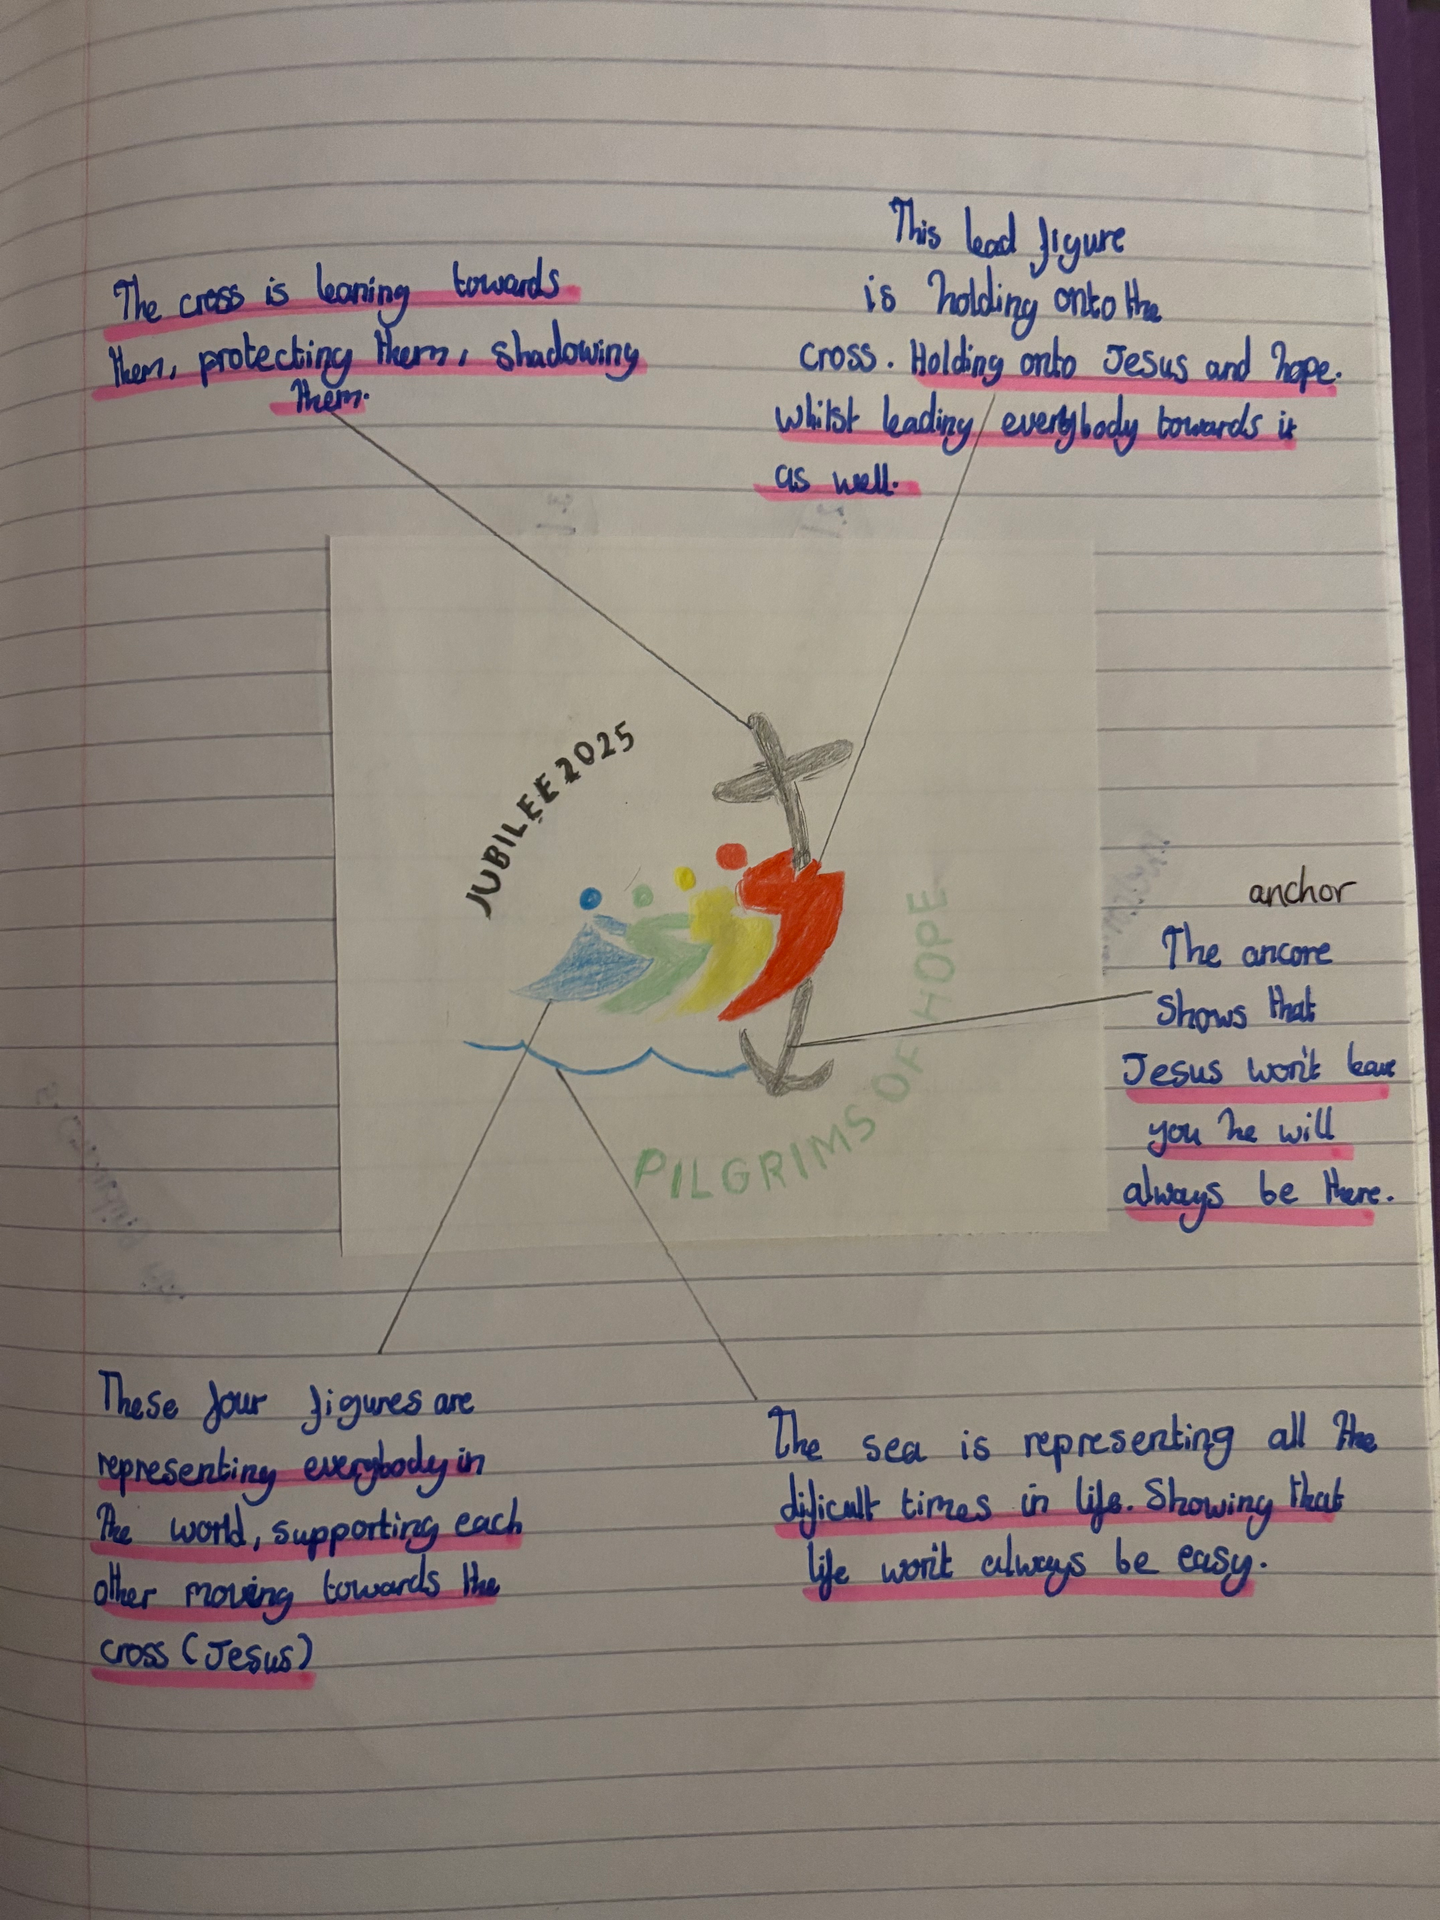 The cross is leaning towards
them, protecting them, shadowing
them.
This lead figure
is holding onto the
cross. Holding onto Jesus and hope.
whilst leading everybody towards it
as well.
JUBILEE 2025
PILGRIMS OF HOPE
anchor
The ancore
shows that
Jesus won't leave
you he will
always be there.
These four figures are
representing everybody in
the world, supporting each
other moving towards the
cross (Jesus)
The sea is representing all the
dificult times in life. Showing that
life won't always be easy.